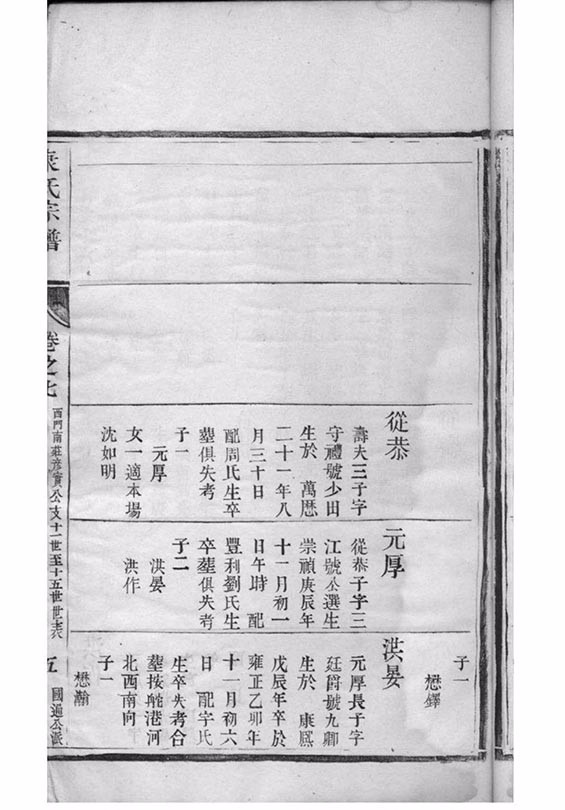 子一
懋鐸
從恭
壽夫三子字
守禮號少田
生於 萬曆
二十一年八
月三十日
配周氏生卒
塟俱失考
子一
元厚
女一適本場
沈如明
元厚
從恭子字三
江號公選生
崇禎庚辰年
十一月初一
日午時 配
豐利劉氏生
卒塟俱失考
子二
洪晏
洪作
洪晏
元厚長子字
廷爵號九卿
生於 康熙
戊辰年卒於
雍正乙卯年
十一月初六
日 配字氏
生卒失考合
塟按舵港河
北西南向
子一
懋瀚
袁氏宗譜
卷之七
西門南莊彦實公支十一世至十五世世表
五
國適公派